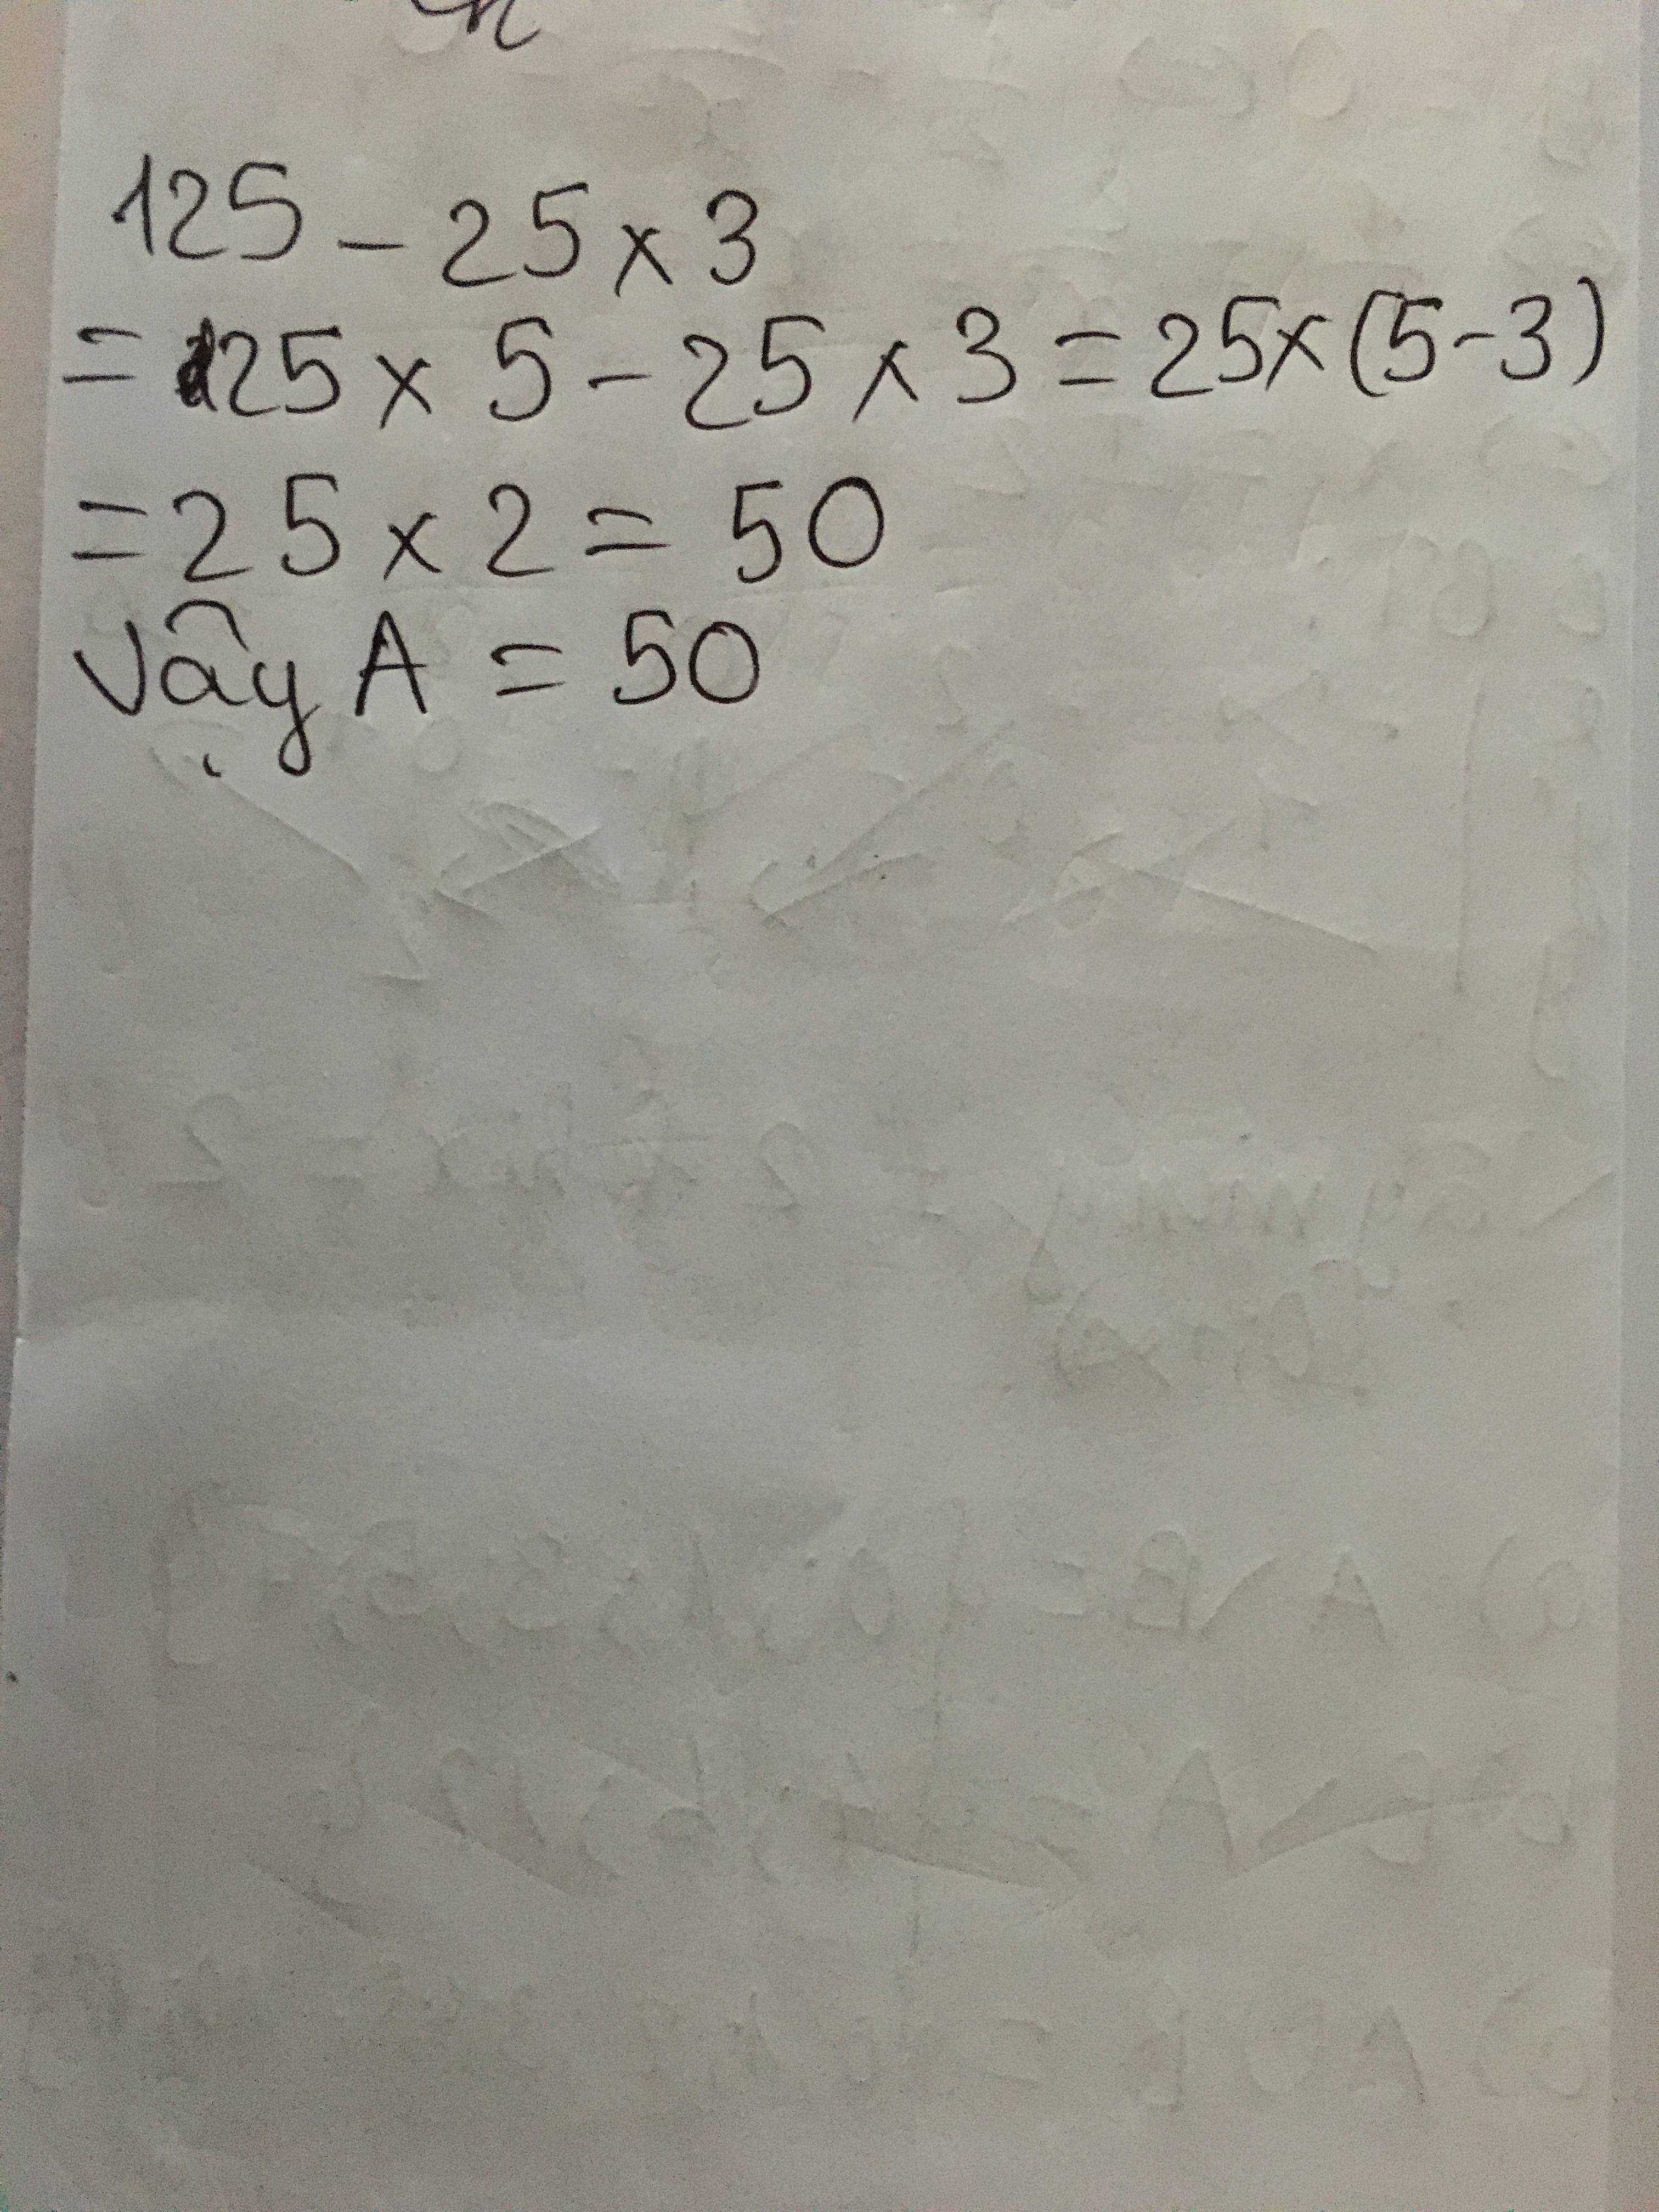 125 - 25 x 3
= 25 x 5 - 25 x 3 = 25 x (5 - 3)
= 25 x 2 = 50
Vậy A = 50